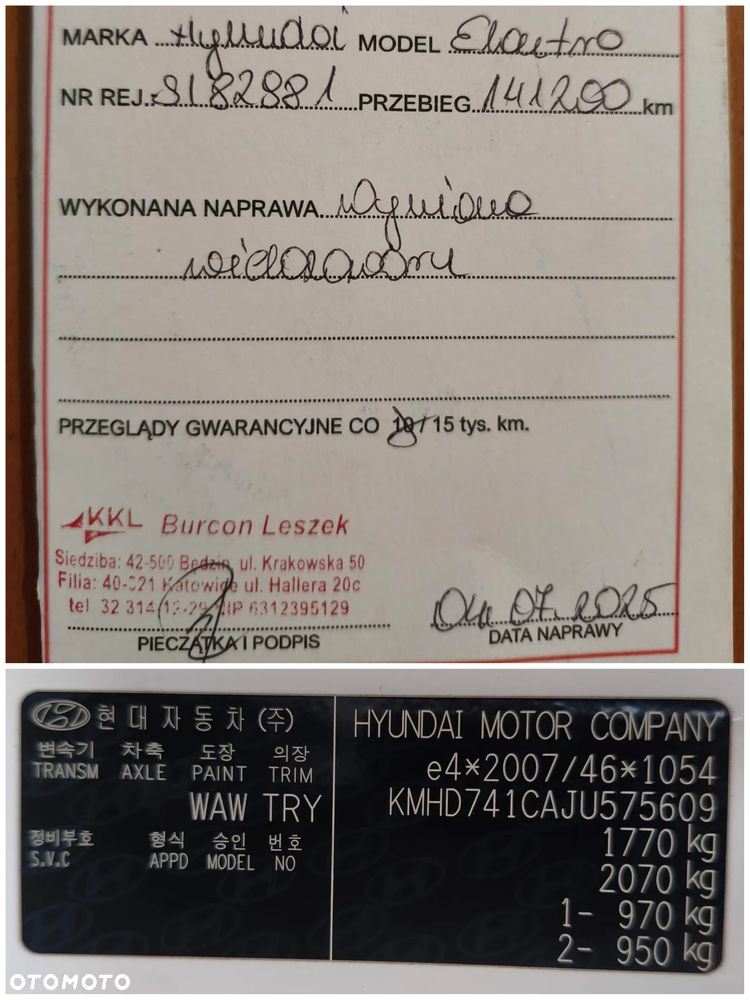 MARKA Hyundai MODEL Elantra
NR REJ.: SI82981 PRZEBIEG 141200 km
WYKONANA NAPRAWA Wymiana
PRZEGLĄDY GWARANCYJNE CO 10/15 tys. km.
KKL Burcon Leszek
Siedziba: 42-500 Będzin, ul. Krakowska 50
Filia: 40-321 Katowice ul. Hallera 20c
tel 32 314 13-29 NIP 6312395129
04.07.2025
PIECZĄTKA I PODPIS DATA NAPRAWY
현대자동차(주)
변속기 차축 도장 의장
TRANSM AXLE PAINT TRIM
WAW TRY
정비부호 형식 승인 번호
S.V.C APPD MODEL NO
HYUNDAI MOTOR COMPANY
e4*2007/46*1054
KMHD741CAJU575609
1770 kg
2070 kg
1- 970 kg
2- 950 kg
OTOMOTO